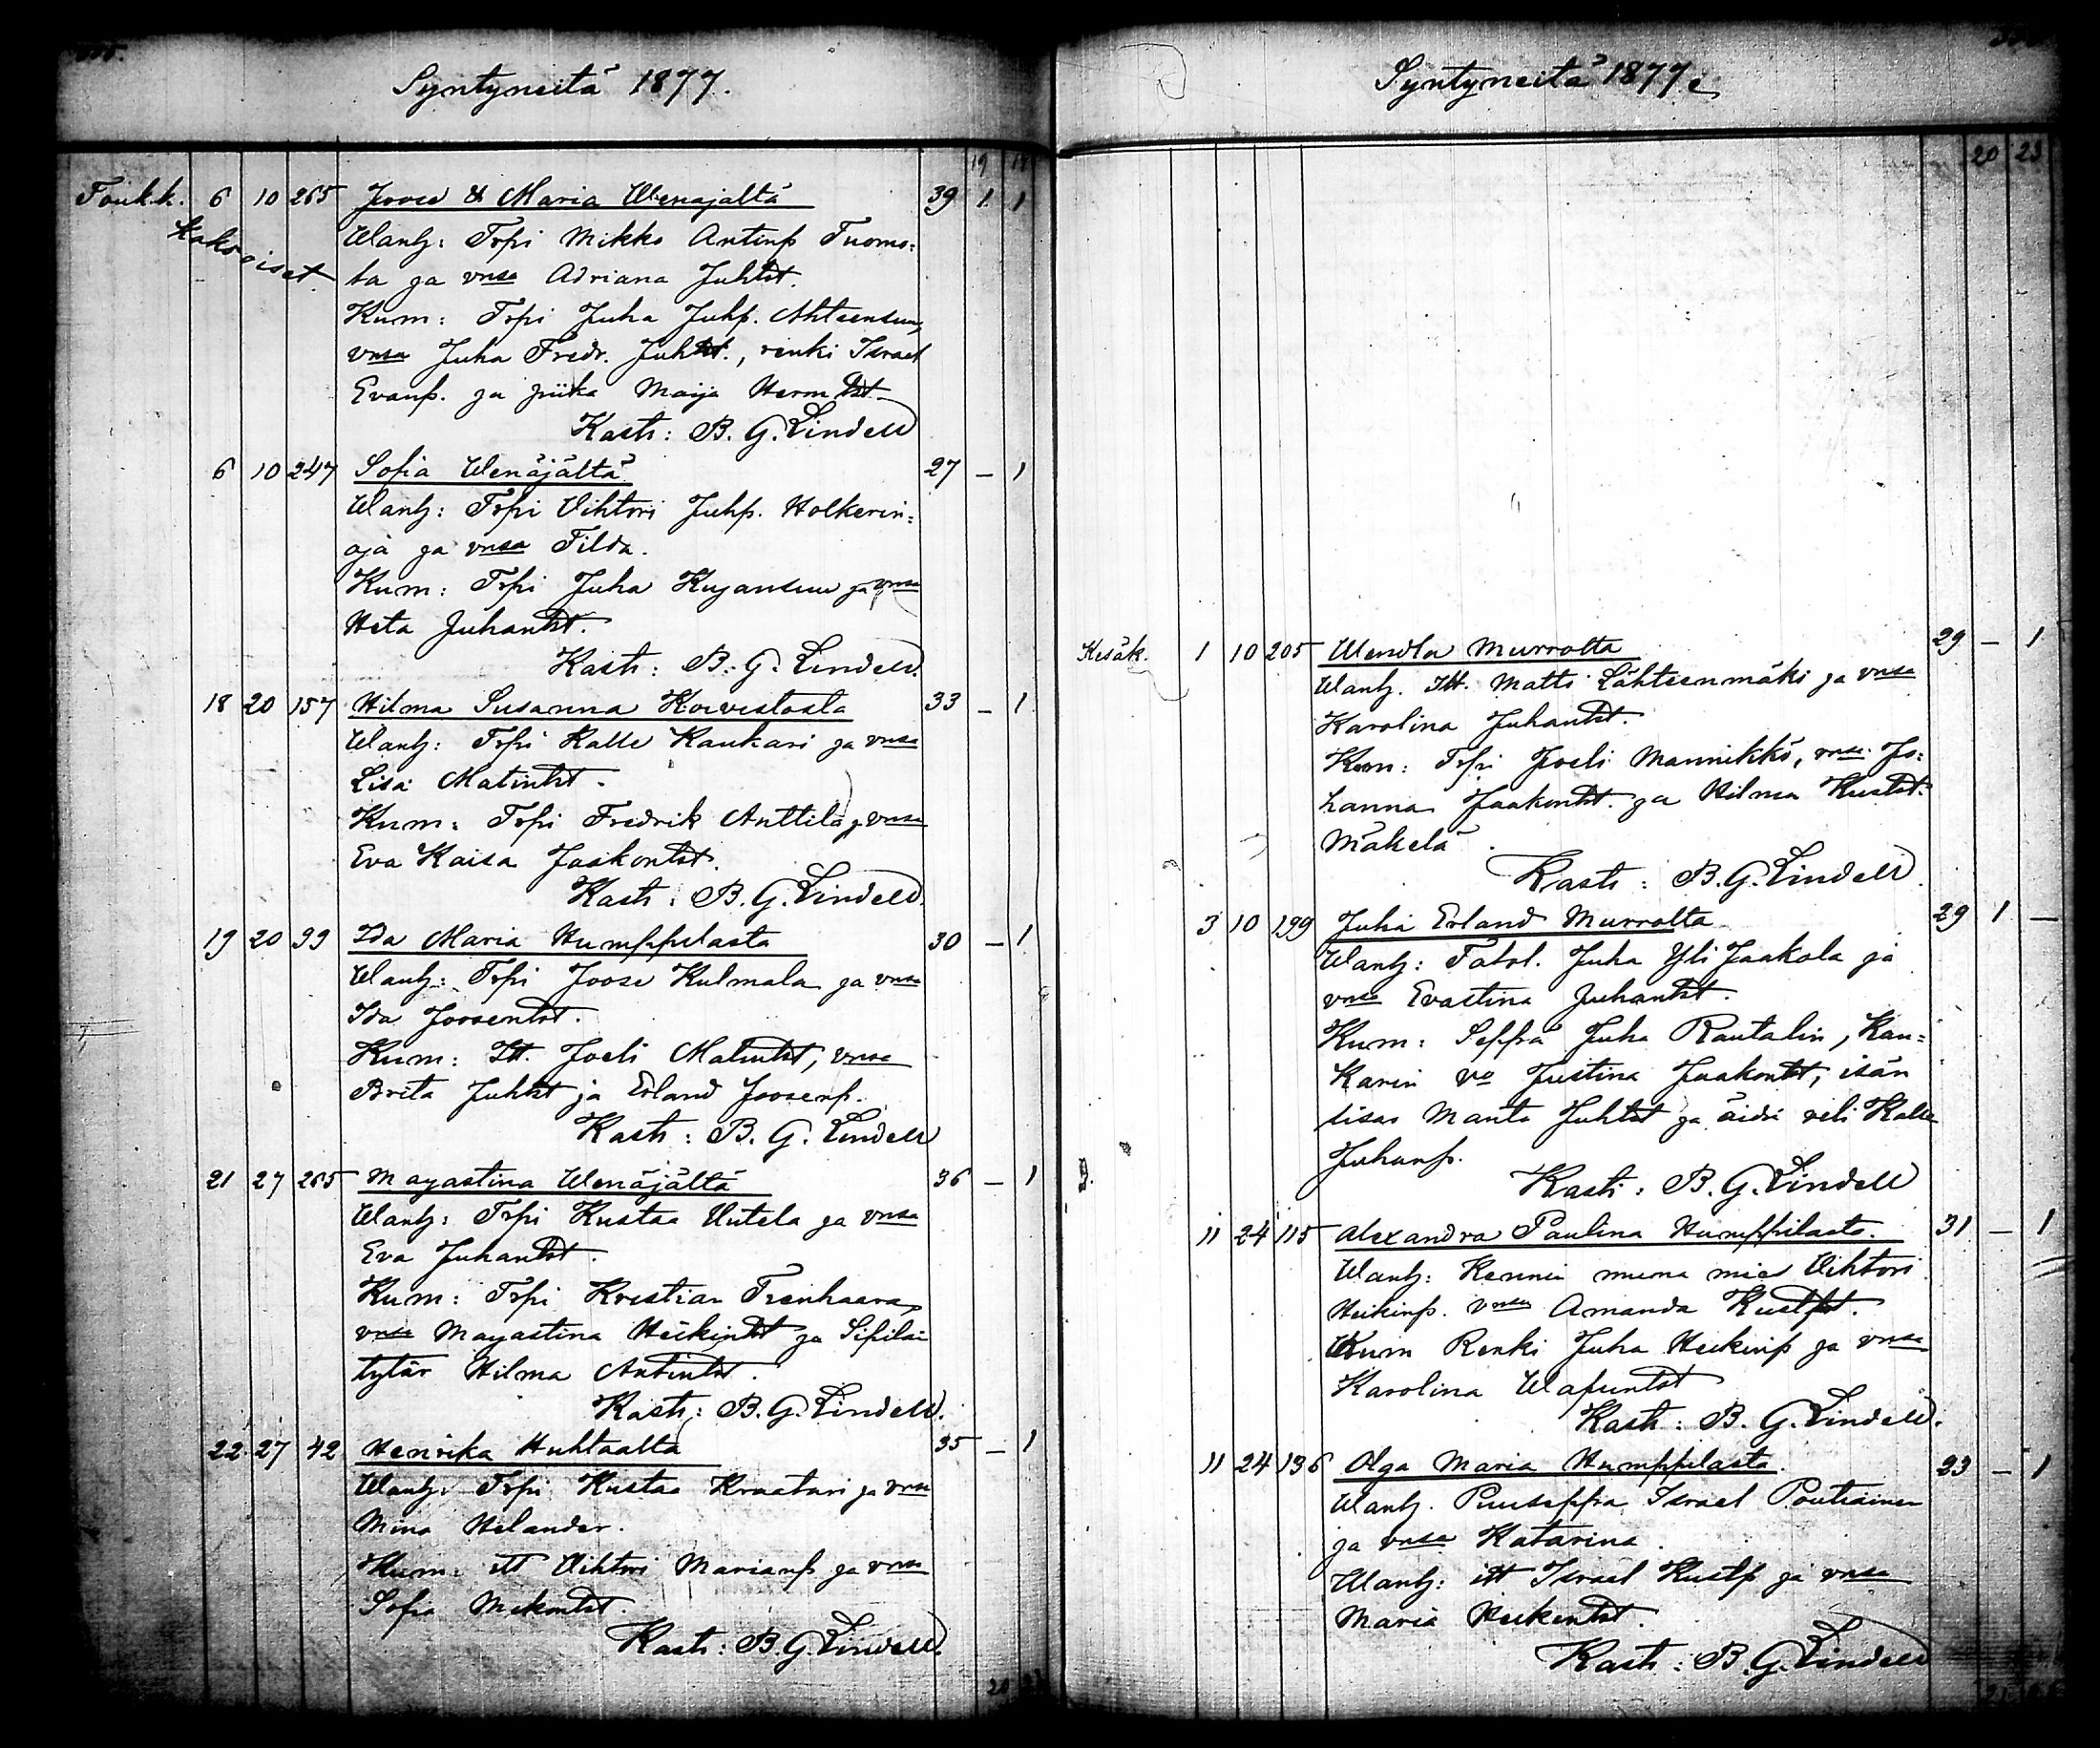 Syntyneitä 1877.
19
Toukk. 6 10 265 Joose & Maria Wenäjältä 39 1 1
Kaksoiset
Wanh: Trpi Mikko Antinp Tuomo-
la ja vmsa Adriana Juhtt.
Kum: Trpi Juha Juhp. Ahteensuu,
vmsa Juha Fredr. Juhtt., renki Israel
Evanp. ja piika Maija Hermtt
Kasti: B. G. Lindell
6 10 247 Sofia Wenäjältä 27 – 1
Wanh: Trpi Vihtori Juhp. Holkerin-
oja ja vmsa Tilda.
Kum: Trpi Juha Kujansuu ja vmsa
Heta Juhantt.
Kasti: B. G. Lindell.
18 20 157 Hilma Susanna Koivistosta 33 – 1
Wanh: Trpi Kalle Kankari ja vmsa
Lisa Matintt.
Kum: Trpi Fredrik Anttila ja vmsa
Eva Kaisa Jaakontt.
Kasti: B. G. Lindell.
19 20 99 Ida Maria Humppilasta 30 – 1
Wanh: Trpi Joose Kulmala ja vmsa
Ida Joosentt.
Kum: Itt. Joeli Matintt, vmsa
Brita Juhtt ja Erland Joosenp.
Kasti: B. G. Lindell
21 27 265 Majastina Wenäjältä 36 – 1
Wanh: Trpi Kustaa Uutela ja vmsa
Eva Juhantt.
Kum: Trpi Kristian Trenhaara,
vmsa Majastina Heikintt ja
tytär Hilma Antintt.
Kasti: B. G. Lindell.
22 27 42 Henrika Huhtaalta 35 – 1
Wanh: Trpi Kustaa Kraatari ja vmsa
Mina Helander.
Kum: itt Vihtori Marianp ja vmsa
Sofia Mikontt.
Kasti: B. G. Lindell.
20
Syntyneitä 1877
20 23
Kesäk. 1 10 205 Wendla Murrolta 29 – 1
Wanh. Itt. Matti Lähteenmäki ja vmsa
Karolina Juhantt.
Kum: Trpi Joeli Mannikkö, vmsa Jo-
hanna Jaakontt. ja Hilma Kustt.
Mäkelä.
Kasti: B. G. Lindell.
3 10 199 Juha Erland Murrolta 29 1 –
Wanh: Talol. Juha Yli Jaakola ja
vmsa Evastina Juhantt.
Kum: Seppä Juha Rautalin, Kan-
karin vo Justina Jaakontt, isän
sisar Manta Juhtt ja äidin veli Kalle
Juhanp.
Kasti: B. G. Lindell
11 24 115 Alexandra Paulina Humppilasta. 31 – 1
Wanh: Rennin muona mies Vihtori
Heikinp. vmsa Amanda Kusttt.
Kum Renki Juha Heikinp ja vmsa
Karolina
Kasti: B. G. Lindell.
11 24 136 Olga Maria Humppilasta. 23 – 1
Wanh. Puuseppä Israel Poutiainen
ja vmsa Katarina.
Wanh: itt Israel Kustp ja vmsa
Maria Heikintt.
Kasti: B. G. Lindell